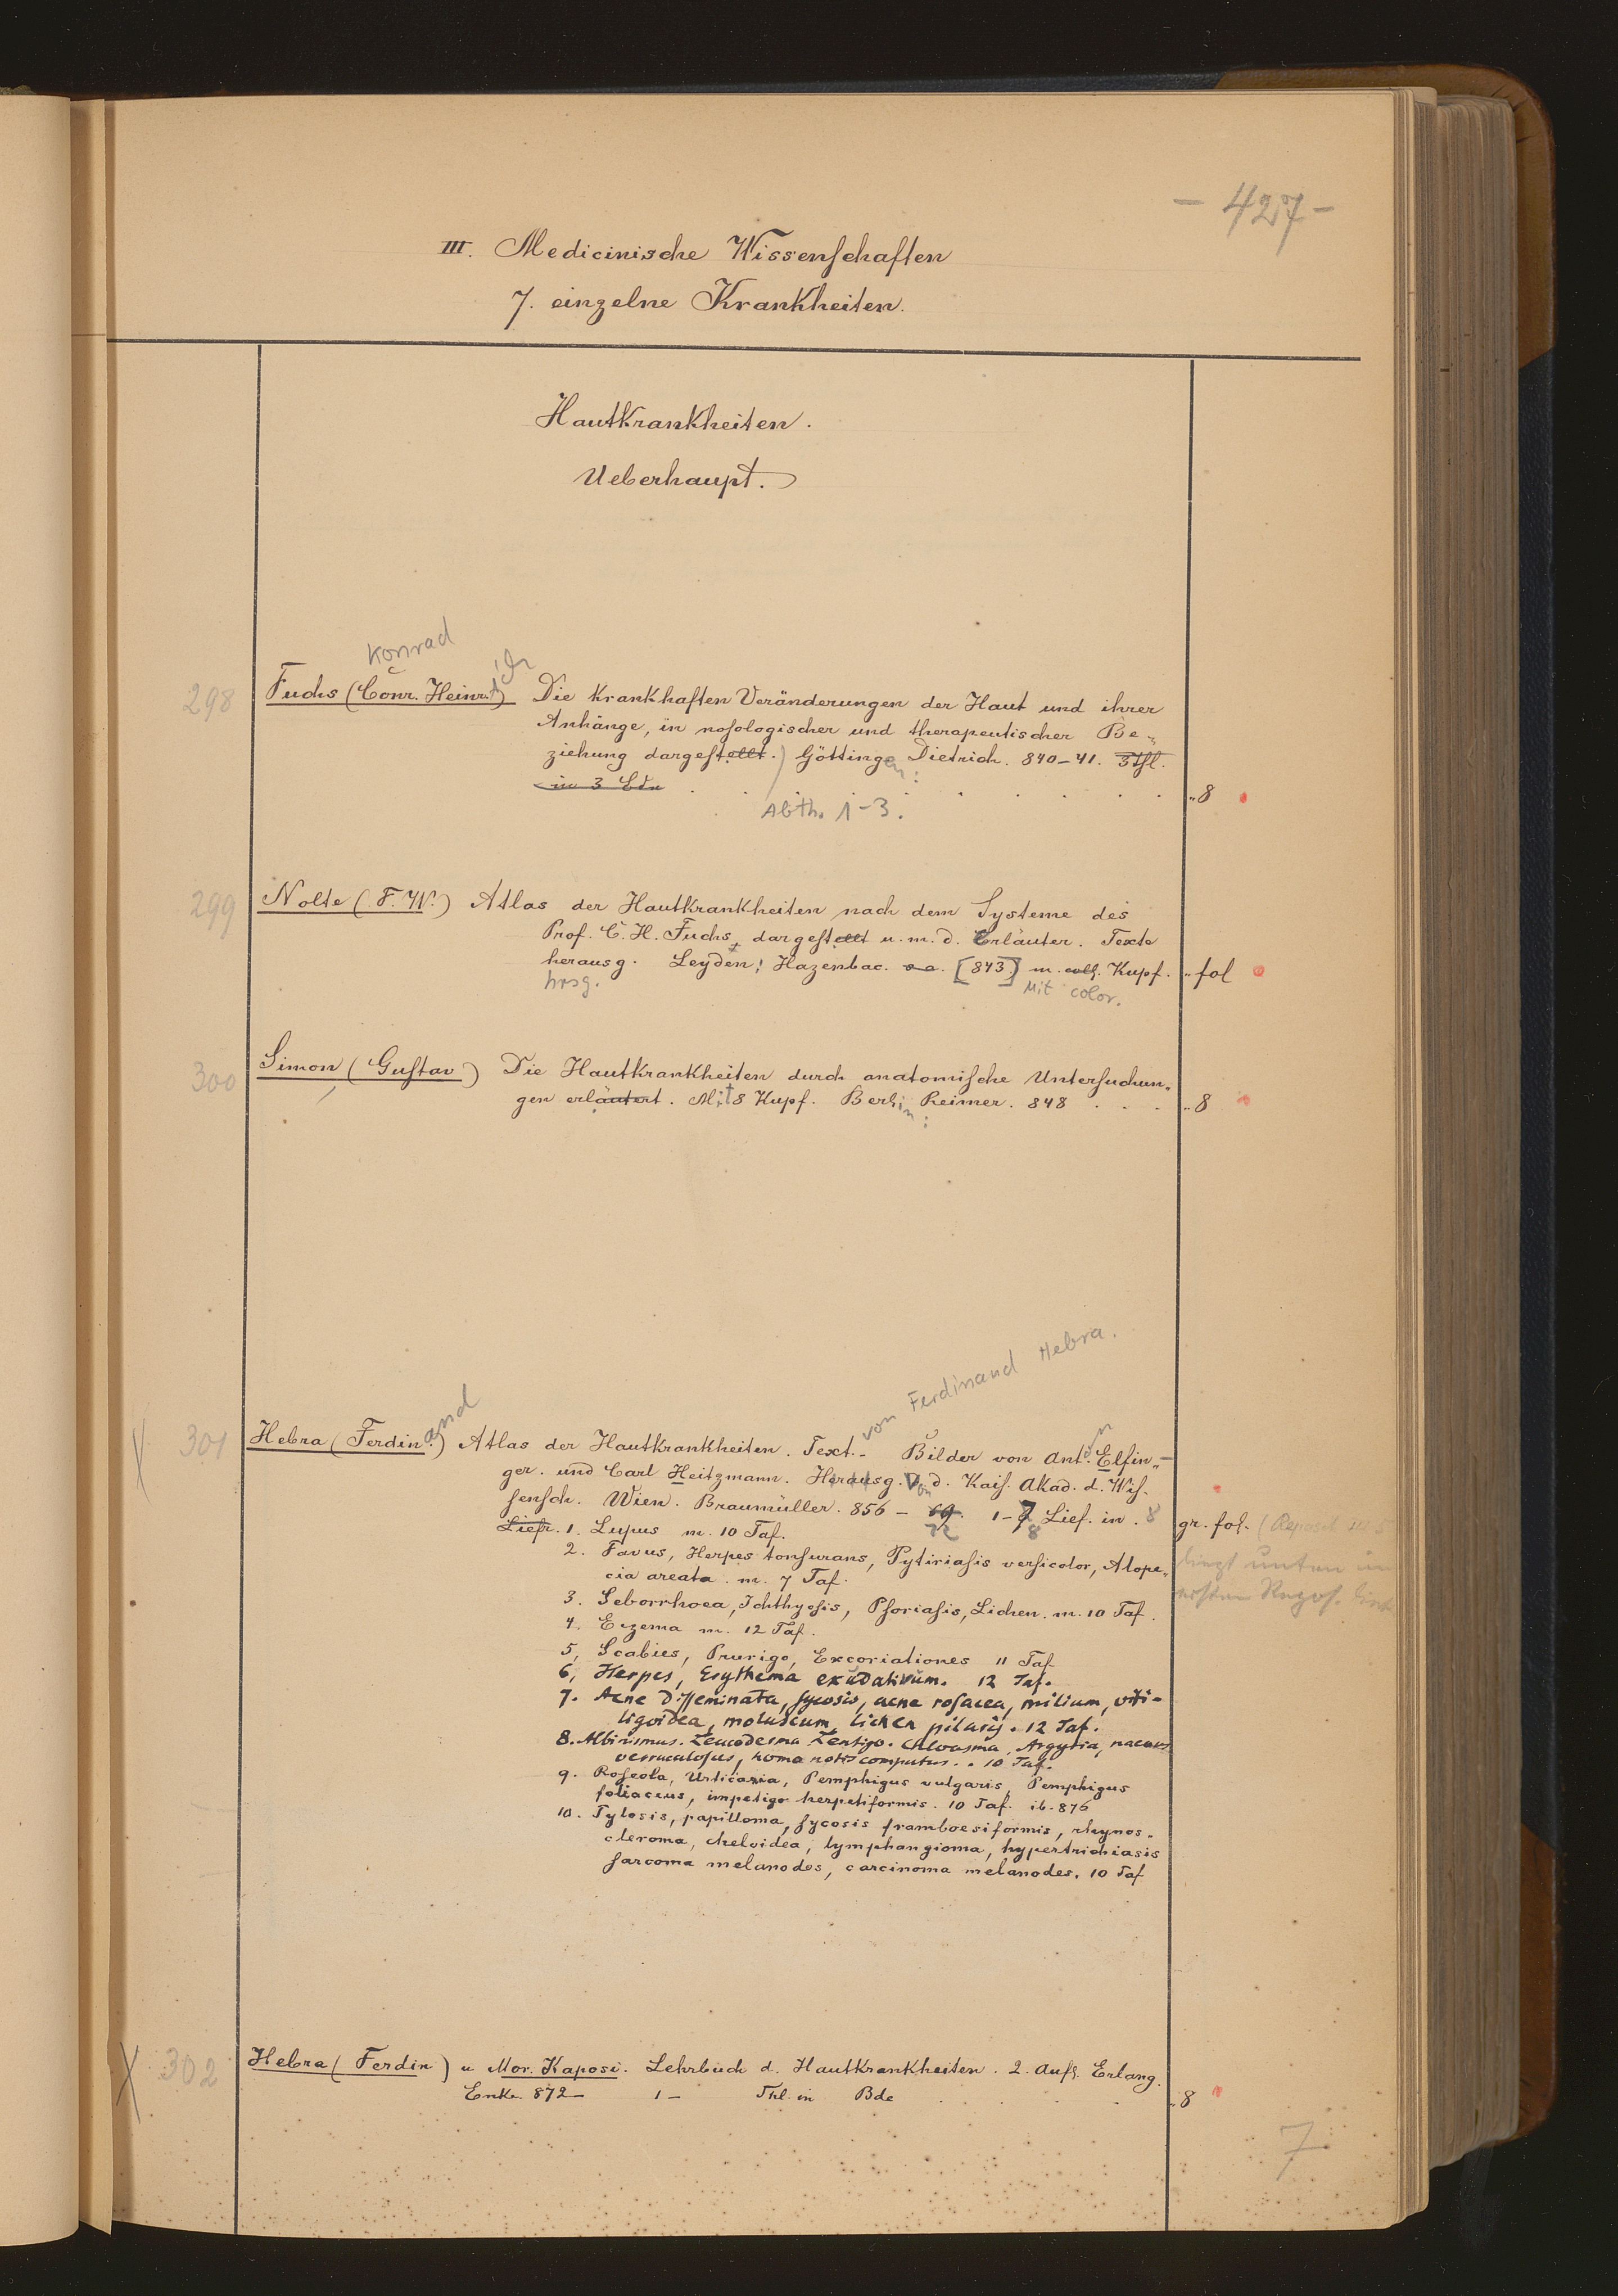 - 427 -
III. Medicinische Wissenschaften
7. einzelne Krankheiten.
Hautkrankheiten.
Ueberhaupt.
Konrad
ich
298 Fuchs (Conr. Heinr.) Die krankhaften Veränderungen der Haut und ihrer
Anhänge, in nosologischer und therapeutischer Be-
ziehung dargestellt.) Göttingen: Dietrich. 840-41. 3 Thl.
in 3 Bdn . . . . . . . „ 8
Abth. 1-3.
299 Nolte (F. W.) Atlas der Hautkrankheiten nach dem Systeme des
Prof. C. H. Fuchs, dargestellt u. m. d. Erläuter. Texte
herausg. Leyden: Hazenbac. s. a. [843] m. col. Kupf. „ fol
hrsg. Mit color.
300 Simon (Gustav) Die Hautkrankheiten durch anatomische Untersuchun-
gen erläutert. Mit 8 Kupf. Berlin: Reimer. 848 . . . „ 8
von Ferdinand Hebra.
301 Hebra (Ferdinand) Atlas der Hautkrankheiten. Text.- Bilder von Anton Elfin-
ger. und Carl Heitzmann. Herausg. Von d. Kais. Akad. d. Wis-
sensch. Wien. Braumüller. 856 - 69. 1-7 Lief. in . 8 gr. fol. (Reposit III 5
72 8
Liefr. 1. Lupus m. 10 Taf. liegt unten im
2. Favus, Herpes tonsurans, Pytiriasis versicolor, Alope-
cia areata m. 7 Taf.
3. Seborrhoea, Ichthyosis, Psoriasis, Lichen. m. 10 Taf.
4. Eczema m. 12 Taf.
5, Scabies, Prurigo, Excoriationes 11 Taf
6, Herpes, Erythema exudativum. 12 Taf.
7. Acne disseminata, sycosis, acne rosacea, milium, viti-
ligoidea, moluscum, lichen pilaris. 12 Taf.
8. Albinismus. Leucoderma Lentigo. Chloasma, Argyria, naevus
verruculosus, homo notis computus. . 10 Taf.
9. Roseola, Urticaria, Pemphigus vulgaris, Pemphigus
foliaceus, impetigo herpetiformis. 10 Taf. ib. 876
10. Tylosis, papilloma, sycosis framboesiformis, rhynos-
cleroma, cheloidea, lymphangioma, hypertrichiasis
sarcoma melanodes, carcinoma melanodes. 10 Taf
302 Hebra (Ferdin) u Mor. Kaposi. Lehrbuch d. Hautkrankheiten. 2. Aufl. Erlang.
Enke 872- 1- Thl. in Bde . . . . „ 8
7